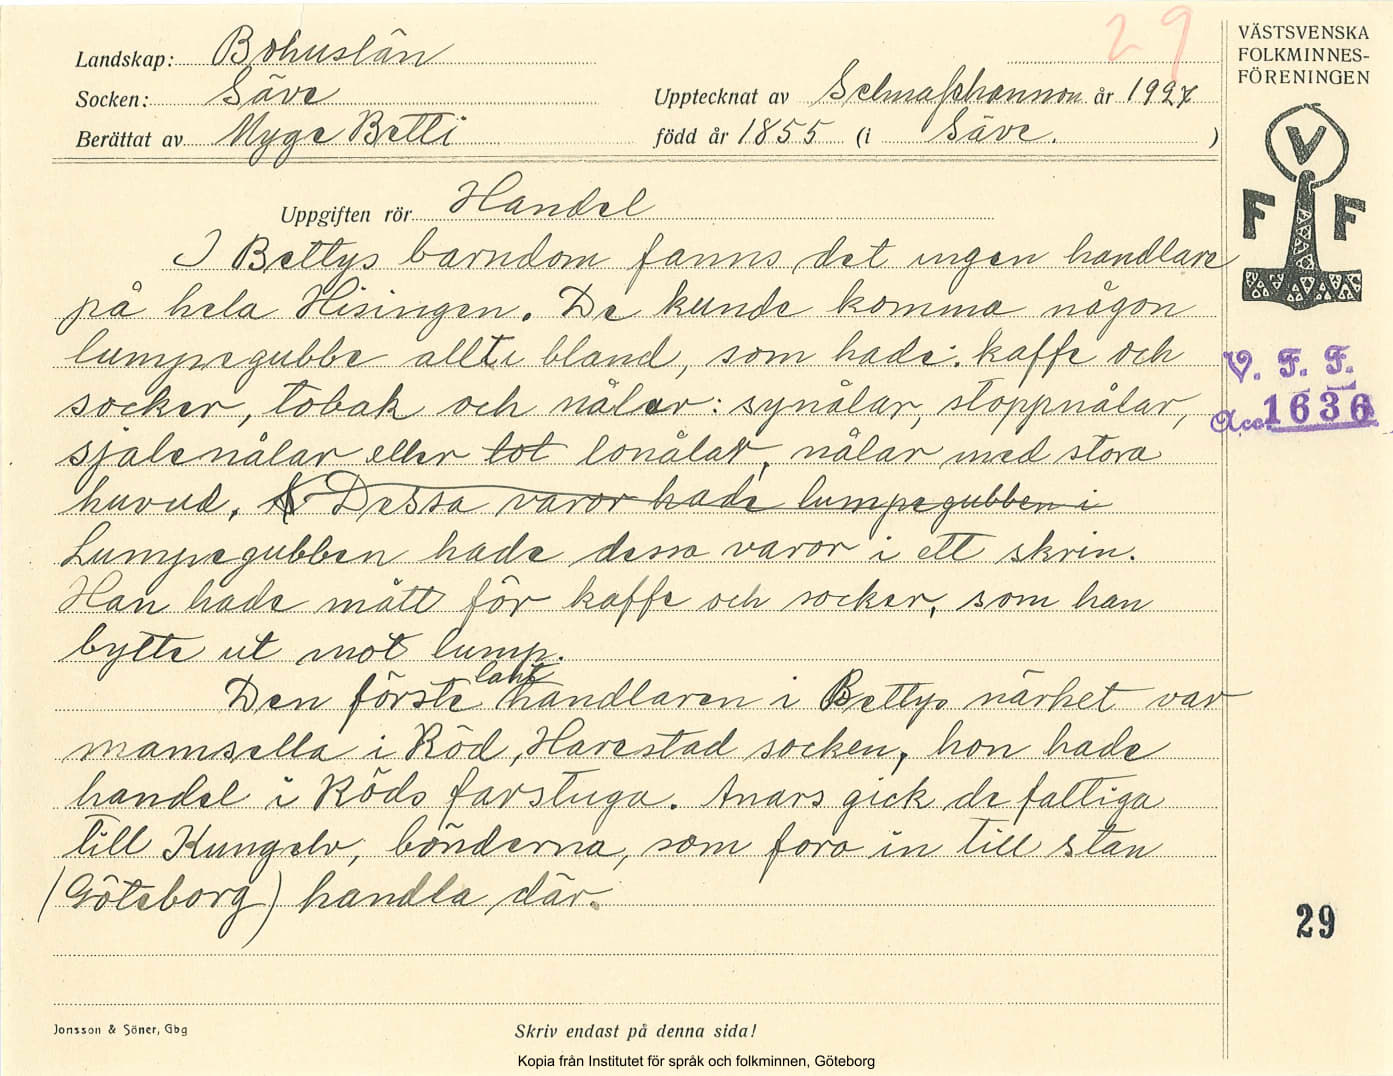 29
Landskap: Bohuslän
Socken: Säve
Upptecknat av Selma Johansson år 1927
Berättat av Myge Betti
född år 1855 (i Säve. )
Uppgiften rör Handel
I Bettys barndom fanns det ingen handlare
på hela Hisingen. De kunde komma någon
lumpegubbe allti bland, som hade kaffe och
socker, tobak och nålar: synålar, stoppnålar,
sjalenålar eller tot lonålar, nålar med stora
huvud. Dessa varor hade lumpegubben i
Lumpegubben hade dessa varor i ett skrin.
Han hade mått för kaffe och socker, som han
bytte ut mot lump.
Den förste lant handlaren i Bettys närhet var
mamsella i Röd, Harestad socken, hon hade
handel i Röds farstuga. Anars gick de fattiga
till Kungelv, bönderna, som foro in till stan
(Göteborg) handla där.
Jonsson & Söner, Gbg
Skriv endast på denna sida!
Kopia från Institutet för språk och folkminnen, Göteborg
VÄSTSVENSKA
FOLKMINNES-
FÖRENINGEN
V
F F
V. F. F.
Acc. 1636
29